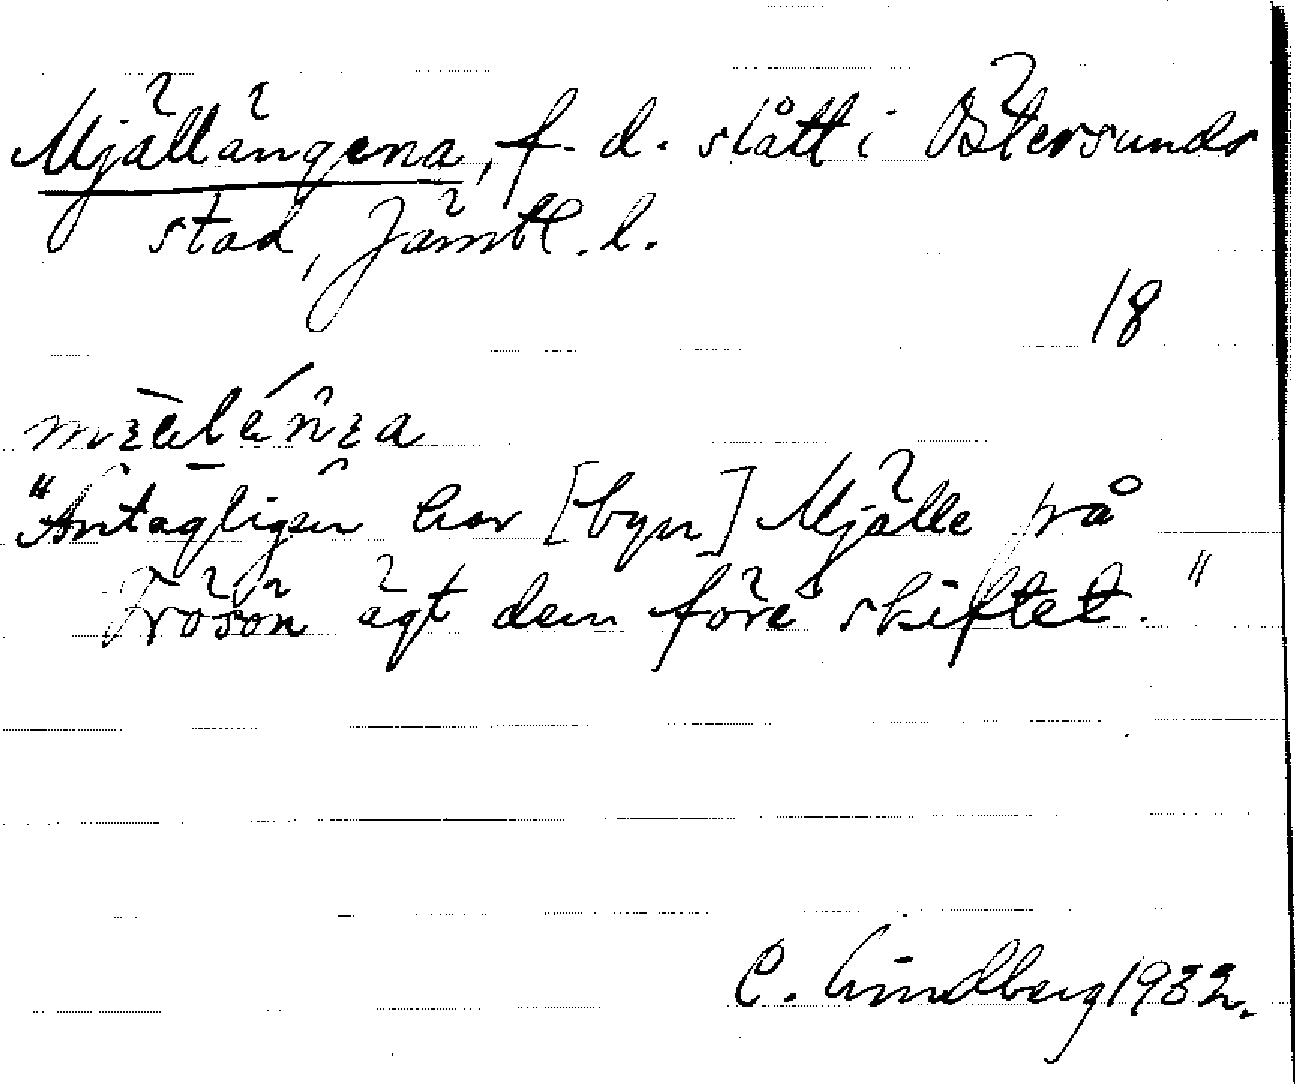 Mjällängena, f. d. slått i Östersunds
stad, Jämtl. l.
18
"Antagligen har [byn] Mjälle på
Frösön ägt dem före skiftet."
C. Lindberg 1932.